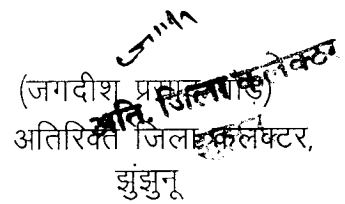 (जगदीश प्रसाद गौड़)
अति. जिला कलेक्टर
अतिरिक्त जिला कलक्टर,
झुंझुनू